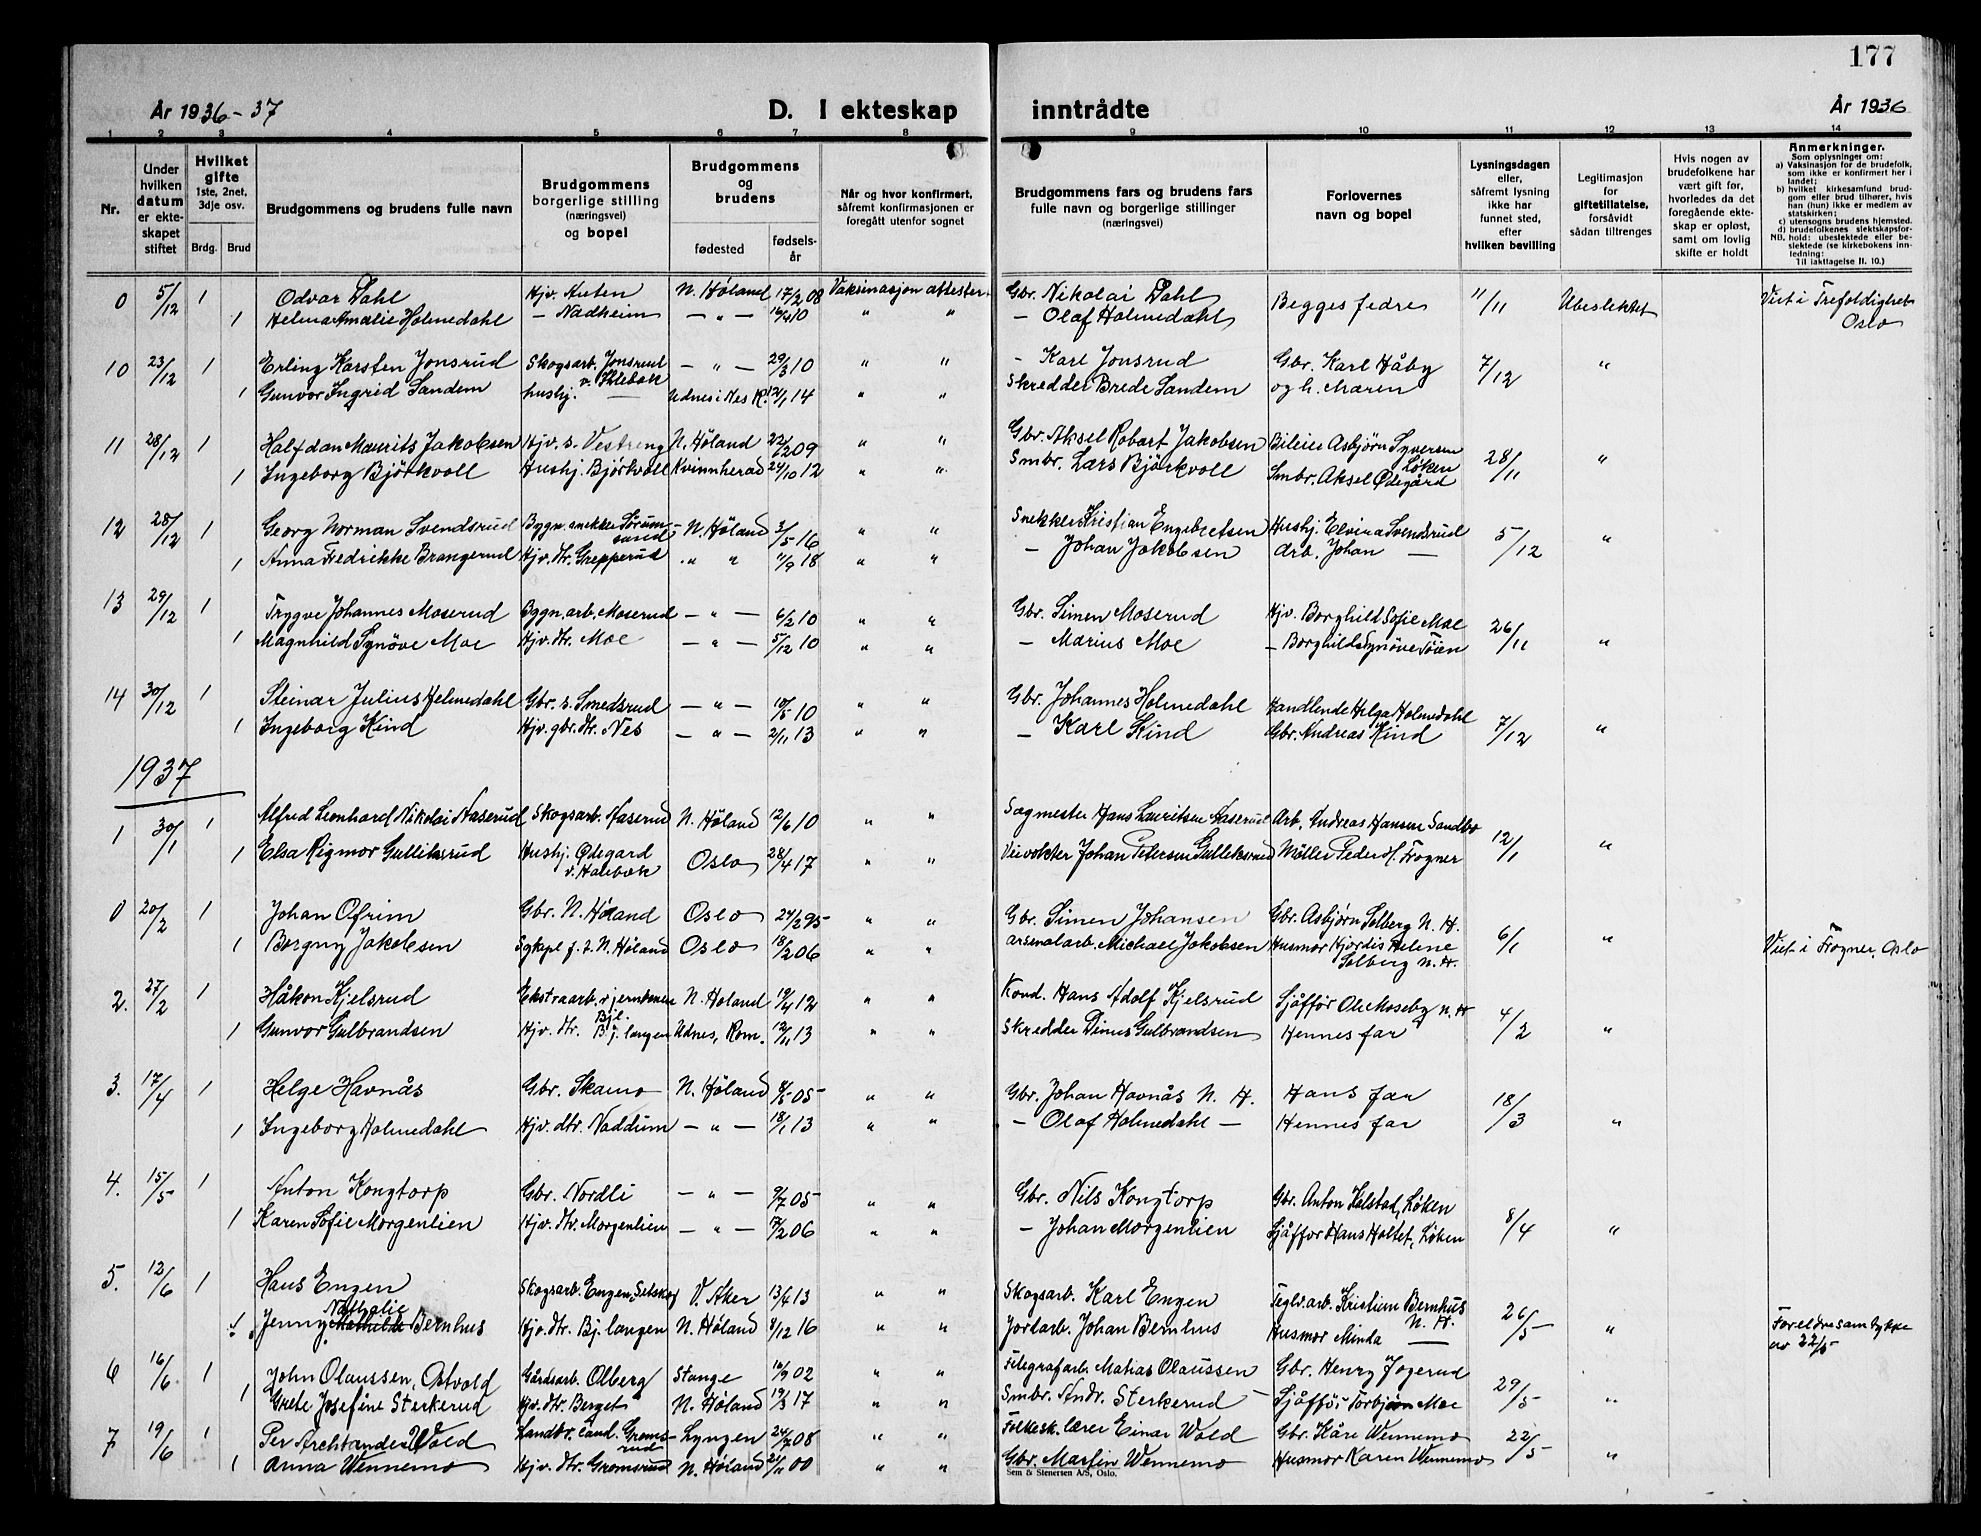 177
År 1936-37
D. I ekteskap inntrådte
År 1936
1 2 3 4 5 6 7 8 9 10 11 12 13 14
Nr.
Under hvilken datum er ekteskapet stiftet
Hvilket gifte 1ste, 2net, 3dje osv.
Brdg. Brud
Brudgommens og brudens fulle navn
Brudgommens borgerlige stilling (næringsvei) og bopel
Brudgommens og brudens
fødested fødselsår
Når og hvor konfirmert, såfremt konfirmasjonen er foregått utenfor sognet
Brudgommens fars og brudens fars fulle navn og borgerlige stillinger (næringsvei)
Forlovernes navn og bopel
Lysningsdagen eller, såfremt lysning ikke har funnet sted, efter hvilken bevilling
Legitimasjon for giftetillatelse, forsåvidt sådan tiltrenges
Hvis nogen av brudefolkene har vært gift før, hvorledes da det foregående ekteskap er opløst, samt om lovlig skifte er holdt
Anmerkninger.
Som oplysninger om:
a) Vaksinasjon for de brudefolk, som ikke er konfirmert her i landet;
b) hvilket kirkesamfund brudgom eller brud tilhører, hvis han (hun) ikke er medlem av statskirken;
c) utensogns brudens hjemsted.
d) brudefolkenes slektskapsforhold: ubeslektede eller beslektede (se kirkebokens innledning:
NB. Til iakttagelse II. 10.)
0 5/12 1 Odvar Dahl Hjv. Auten N. Høland 17/2 08 Vaksinasjon attester Gbr. Nikolai Dahl Begges fedre 11/11 Ubeslektet Viet i Trefoldighet Oslo
1 Helma Amalie Holmedahl — Nadheim — " — 16/4 10 " " — Olaf Holmedahl
10 23/12 1 Erling Karsten Jonsrud Skogsarb. Jonsrud — " — 29/3 10 " " - Karl Jonsrud Gbr. Karl Håby 7/12 "
1 Gunvor Ingrid Sandem hushj. — Udnes i Nes R. 12/1 14 " " Skredder Brede Sandem og h. Maren
11 28/12 1 Halfdan Maurits Jakobsen Hjv. s. Vestreng N. Høland 22/2 09 " " Gbr. Aksel Robart Jakobsen Bileier Asbjørn Syversen Løken 28/11 "
1 Ingeborg Bjørkvoll Hushj. Bjørkvoll Kvinnherad 24/10 12 " " Smbr. Lars Bjørkvoll Smbr. Aksel Ødegård
12 28/12 1 Georg Norman Svendsrud Bygn. snekker Sørumsand N. Høland 3/5 16 " " Snekker Kristian Engebretsen Hushj. Elvina Svendsrud 5/12 "
1 Anna Fredrikke Brangerud Hjv. dtr. Grepperud " " 11/9 18 " " — Johan Jakobsen Arb. Johan —
13 29/12 1 Trygve Johannes Moserud Bygn. arb. Moserud — " — 6/2 10 " " Gbr. Simen Moserud Hjv. Borghild Sofie Moe 26/11 "
1 Magnhild Synøve Moe Hjv. dtr. Moe — " — 5/12 10 " " — Marius Moe — Borghild Synøve Tøien
14 30/12 1 Steinar Julius Holmedahl Gbr. s. Smedsrud — " — 10/5 10 " " Gbr. Johannes Holmedahl Handlende Helga Holmedahl 7/12 "
1 Ingeborg Kind Hjv. gbr. dtr. Nes — " — 2/11 13 " " — Karl Kind Gbr. Andreas Kind
1937
1 30/1 1 Alfred Leonhard Nikolai Haserud Skogsarb. Haserud N. Høland 12/6 10 " " Sagmester Hans Lauritsen Haserud Arb. Andreas Hansen Sandbo 12/1 "
1 Elsa Rigmor Gulliksrud Hushj. Ødegard Oslo 28/4 17 " " Veivokter Johan Petersen Gulliksrud Møller Peder H. Frogner
0 20/2 1 Johan Ofrim Gbr. N. Høland Oslo 24/2 95 " " Gbr. Simen Johansen Gbr. Asbjørn Solberg N. H. 6/1 " Viet i Frogner, Oslo
1 Borgny Jakobsen Sykepl. f. i N. Høland Oslo 18/2 06 " " arsenalarb. Michael Jakobsen Husmor Hjørdis Helene Solberg N. H.
2. 27/2 1 Håkon Kjelsrud Ekstraarb. v. jernbanen N. Høland 19/4 12 " " Kond. Hans Adolf Kjelsrud Sjåffør Ole Moseby N. H 4/2 "
1 Gunvor Gulbrandsen Hjv. dtr. Bj. langen Udnes, Rom. 12/11 13 " " Skredder Dinus Gulbrandsen Hennes far
3. 17/4 1 Helge Havnås Gbr. Skamo N. Høland 8/5 05 " " Gbr. Johan Havnås N. H. Hans far 18/3 "
1 Ingeborg Holmedahl Hjv. dtr. Naddum — " — 18/1 13 " " — Olaf Holmedahl — Hennes far
4. 15/5 1 Anton Kongtorp Gbr. Nordli — " — 9/7 05 " " Gbr. Nils Kongtorp Gbr. Anton Helstad, Løken 8/4 "
1 Karen Sofie Morgenlien Hjv. dtr. Morgenlien — " — 7/2 06 " " — Johan Morgenlien Sjåffør Hans Holtet, Løken
5. 12/6 1 Hans Engen Skogsarb. Engen, Setskog V. Aker 13/4 13 " " Skogsarb. Karl Engen Teglv.arb. Kristian Bernhus N. H. 26/5 " Foreldresamtykke av 22/5
1 Jenny Nathalie Mathilde Bernhus Hjv. dtr. Bj. langen N. Høland 8/12 16 " " Jordarb. Johan Bernhus Husmor Minda —
6 16/6 1 John Olaussen Ostvold Gårdsarb. Olberg Stange 16/9 02 " " Telegrafarb. Matias Olaussen Gbr. Henry Jogerud 29/5 "
1 Grete Josefine Sterkerud Hjv. dtr. Berget N. Høland 19/3 17 " " Smbr. Andr. Sterkerud Sjåffør Torbjørn Moe
7 19/6 1 Per Archtander Wold Landbr. cand. Gromsrud Lyngen 24/7 08 " " Folkesk. lærer Einar Wold Gbr. Kåre Wennemo 22/5 "
1 Anna Wennemo Hjv. dtr. Gromsrud N. Høland 21/11 00 " " Gbr. Martin Wennemo Husmor Karen Wennemo
Sem & Stenersen A/S, Oslo.